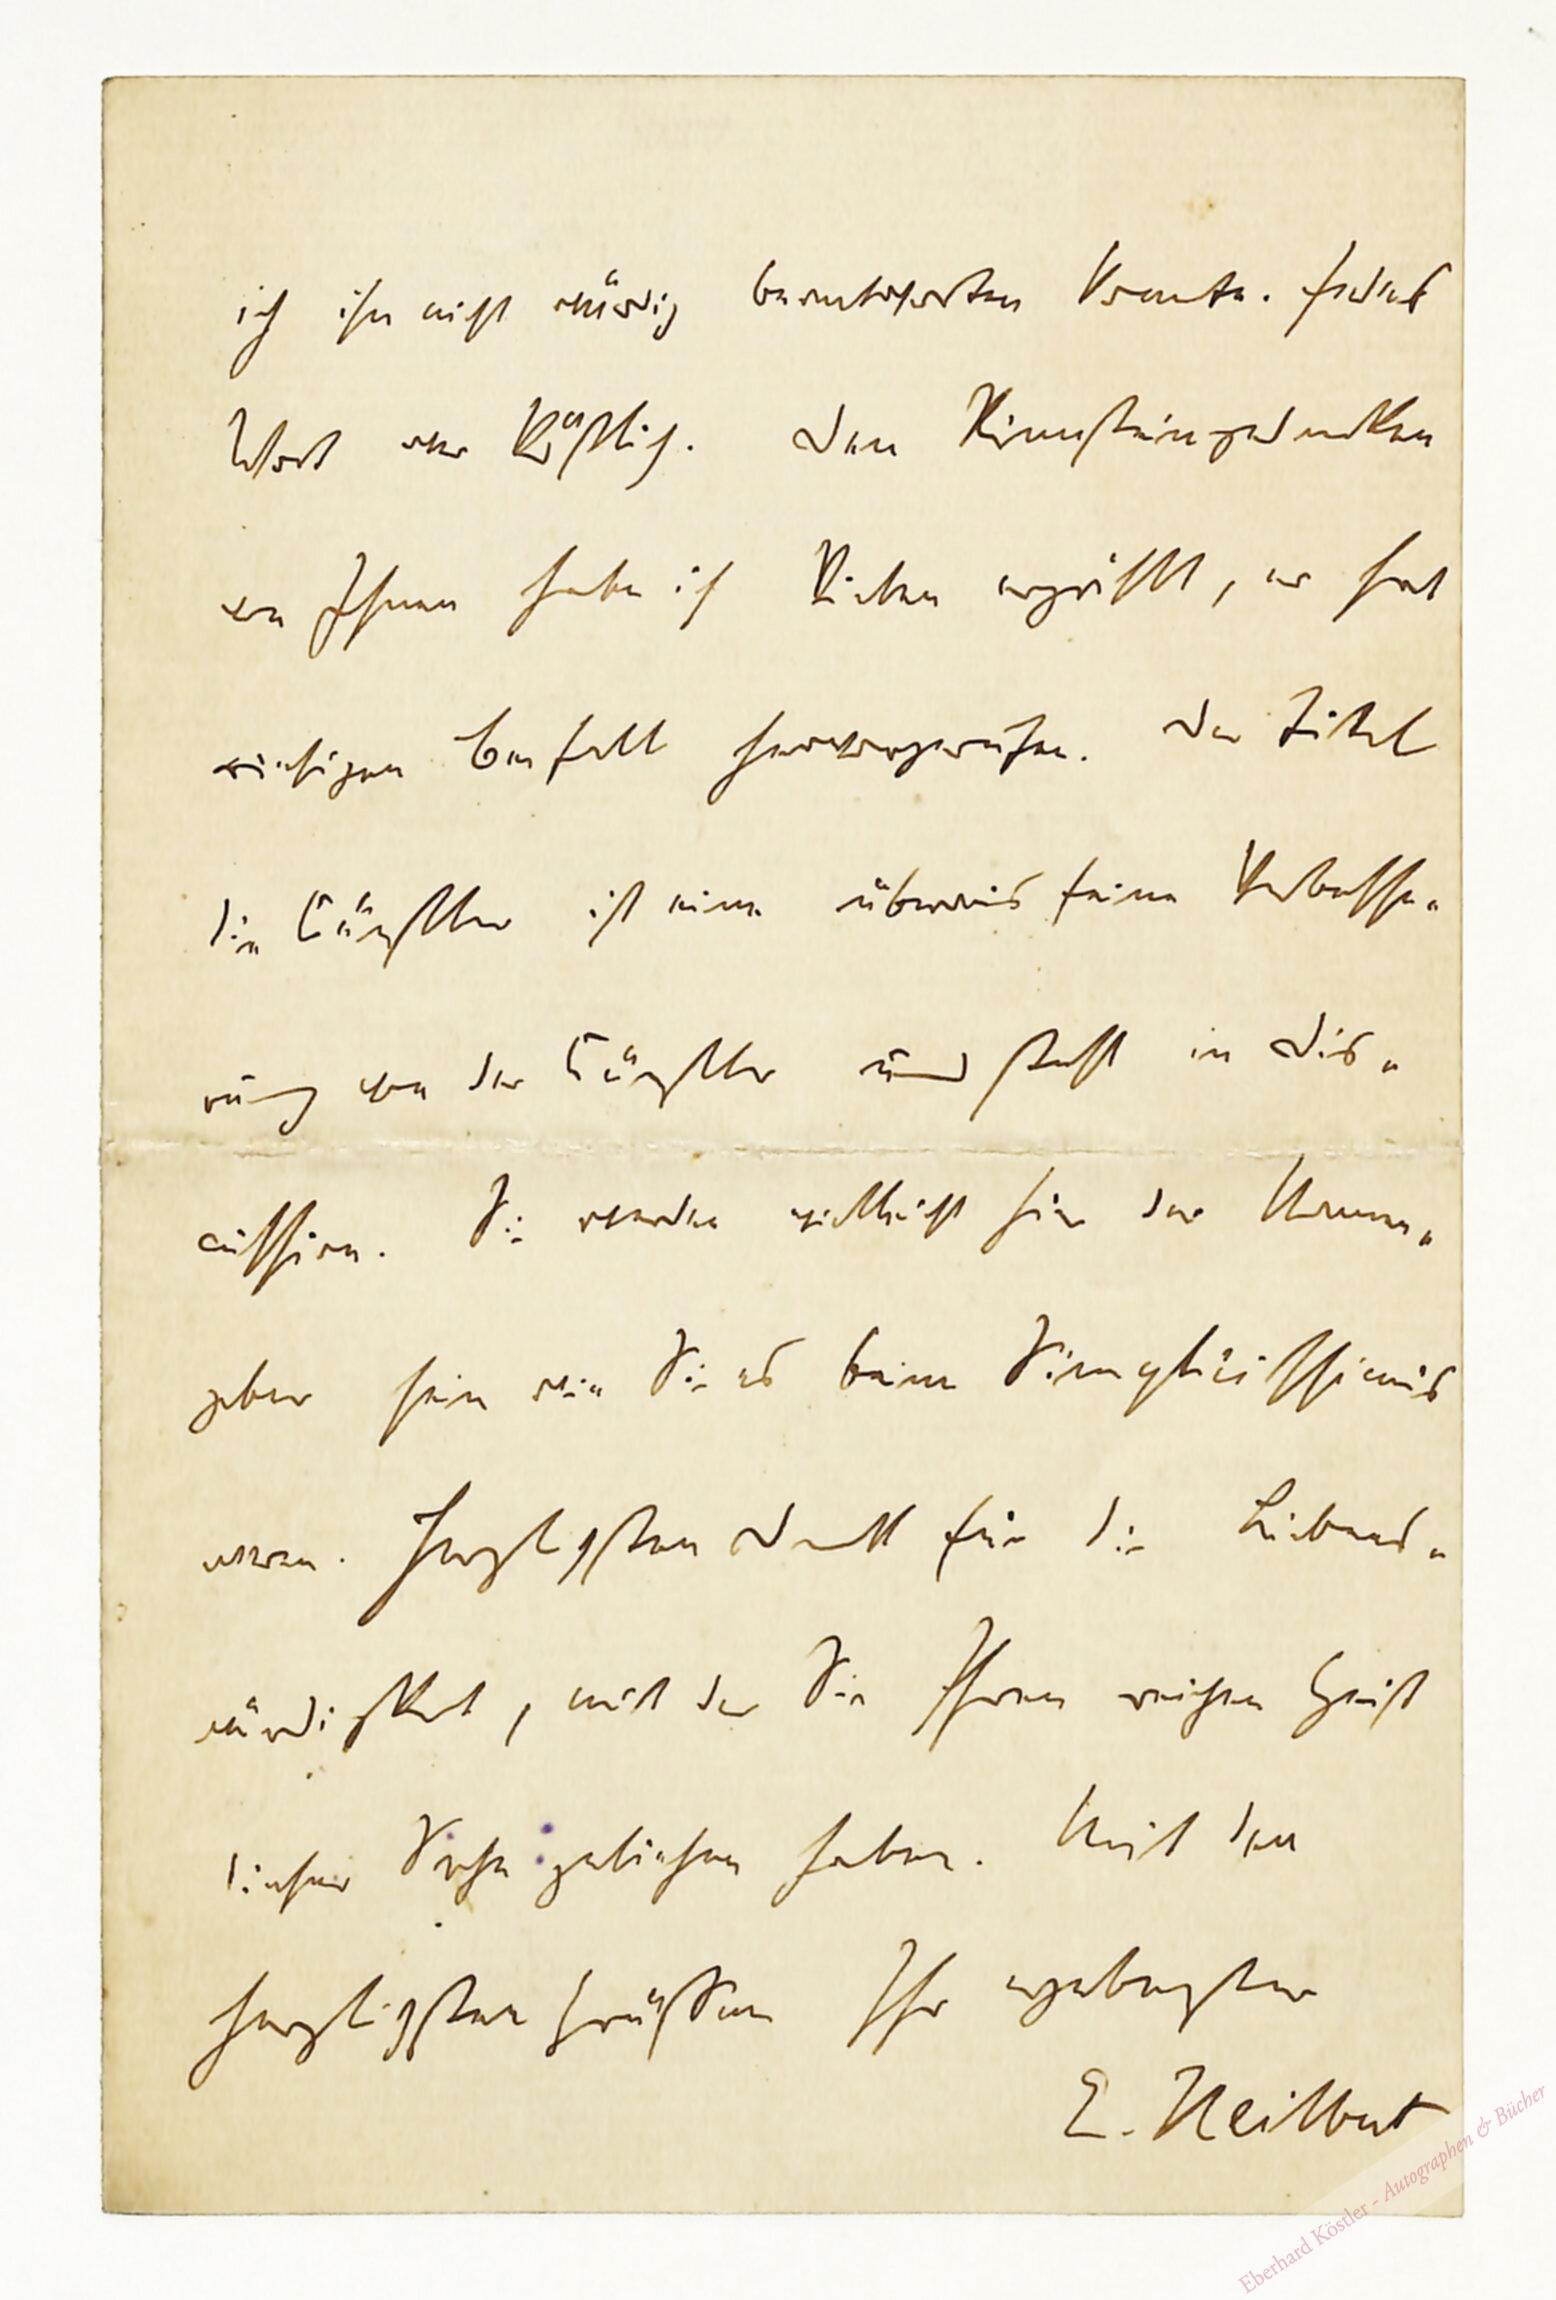 ich ihn nicht würdig beantworten konnte. Jedes
Wort war köstlich. Den
von Ihnen habe ich Vielen erzählt, er hat
riesigen Beifall hervorgerufen. Der Titel
die Künstler ist eine überaus feine Verbesse-
rung von der Künstler und steht in Dis-
cussion. Sie werden vielleicht hier der Namen-
geber sein wie Sie es beim Simplicissimus
waren. Herzlichsten Dank für die Liebens-
würdigkeit, mit der Sie Ihren reichen Geist
dieser Sache geliehen haben. Mit den
herzlichsten Grüßen Ihr ergebenster
E. Heilbut
Eberhard Köstler - Autographen & Bücher